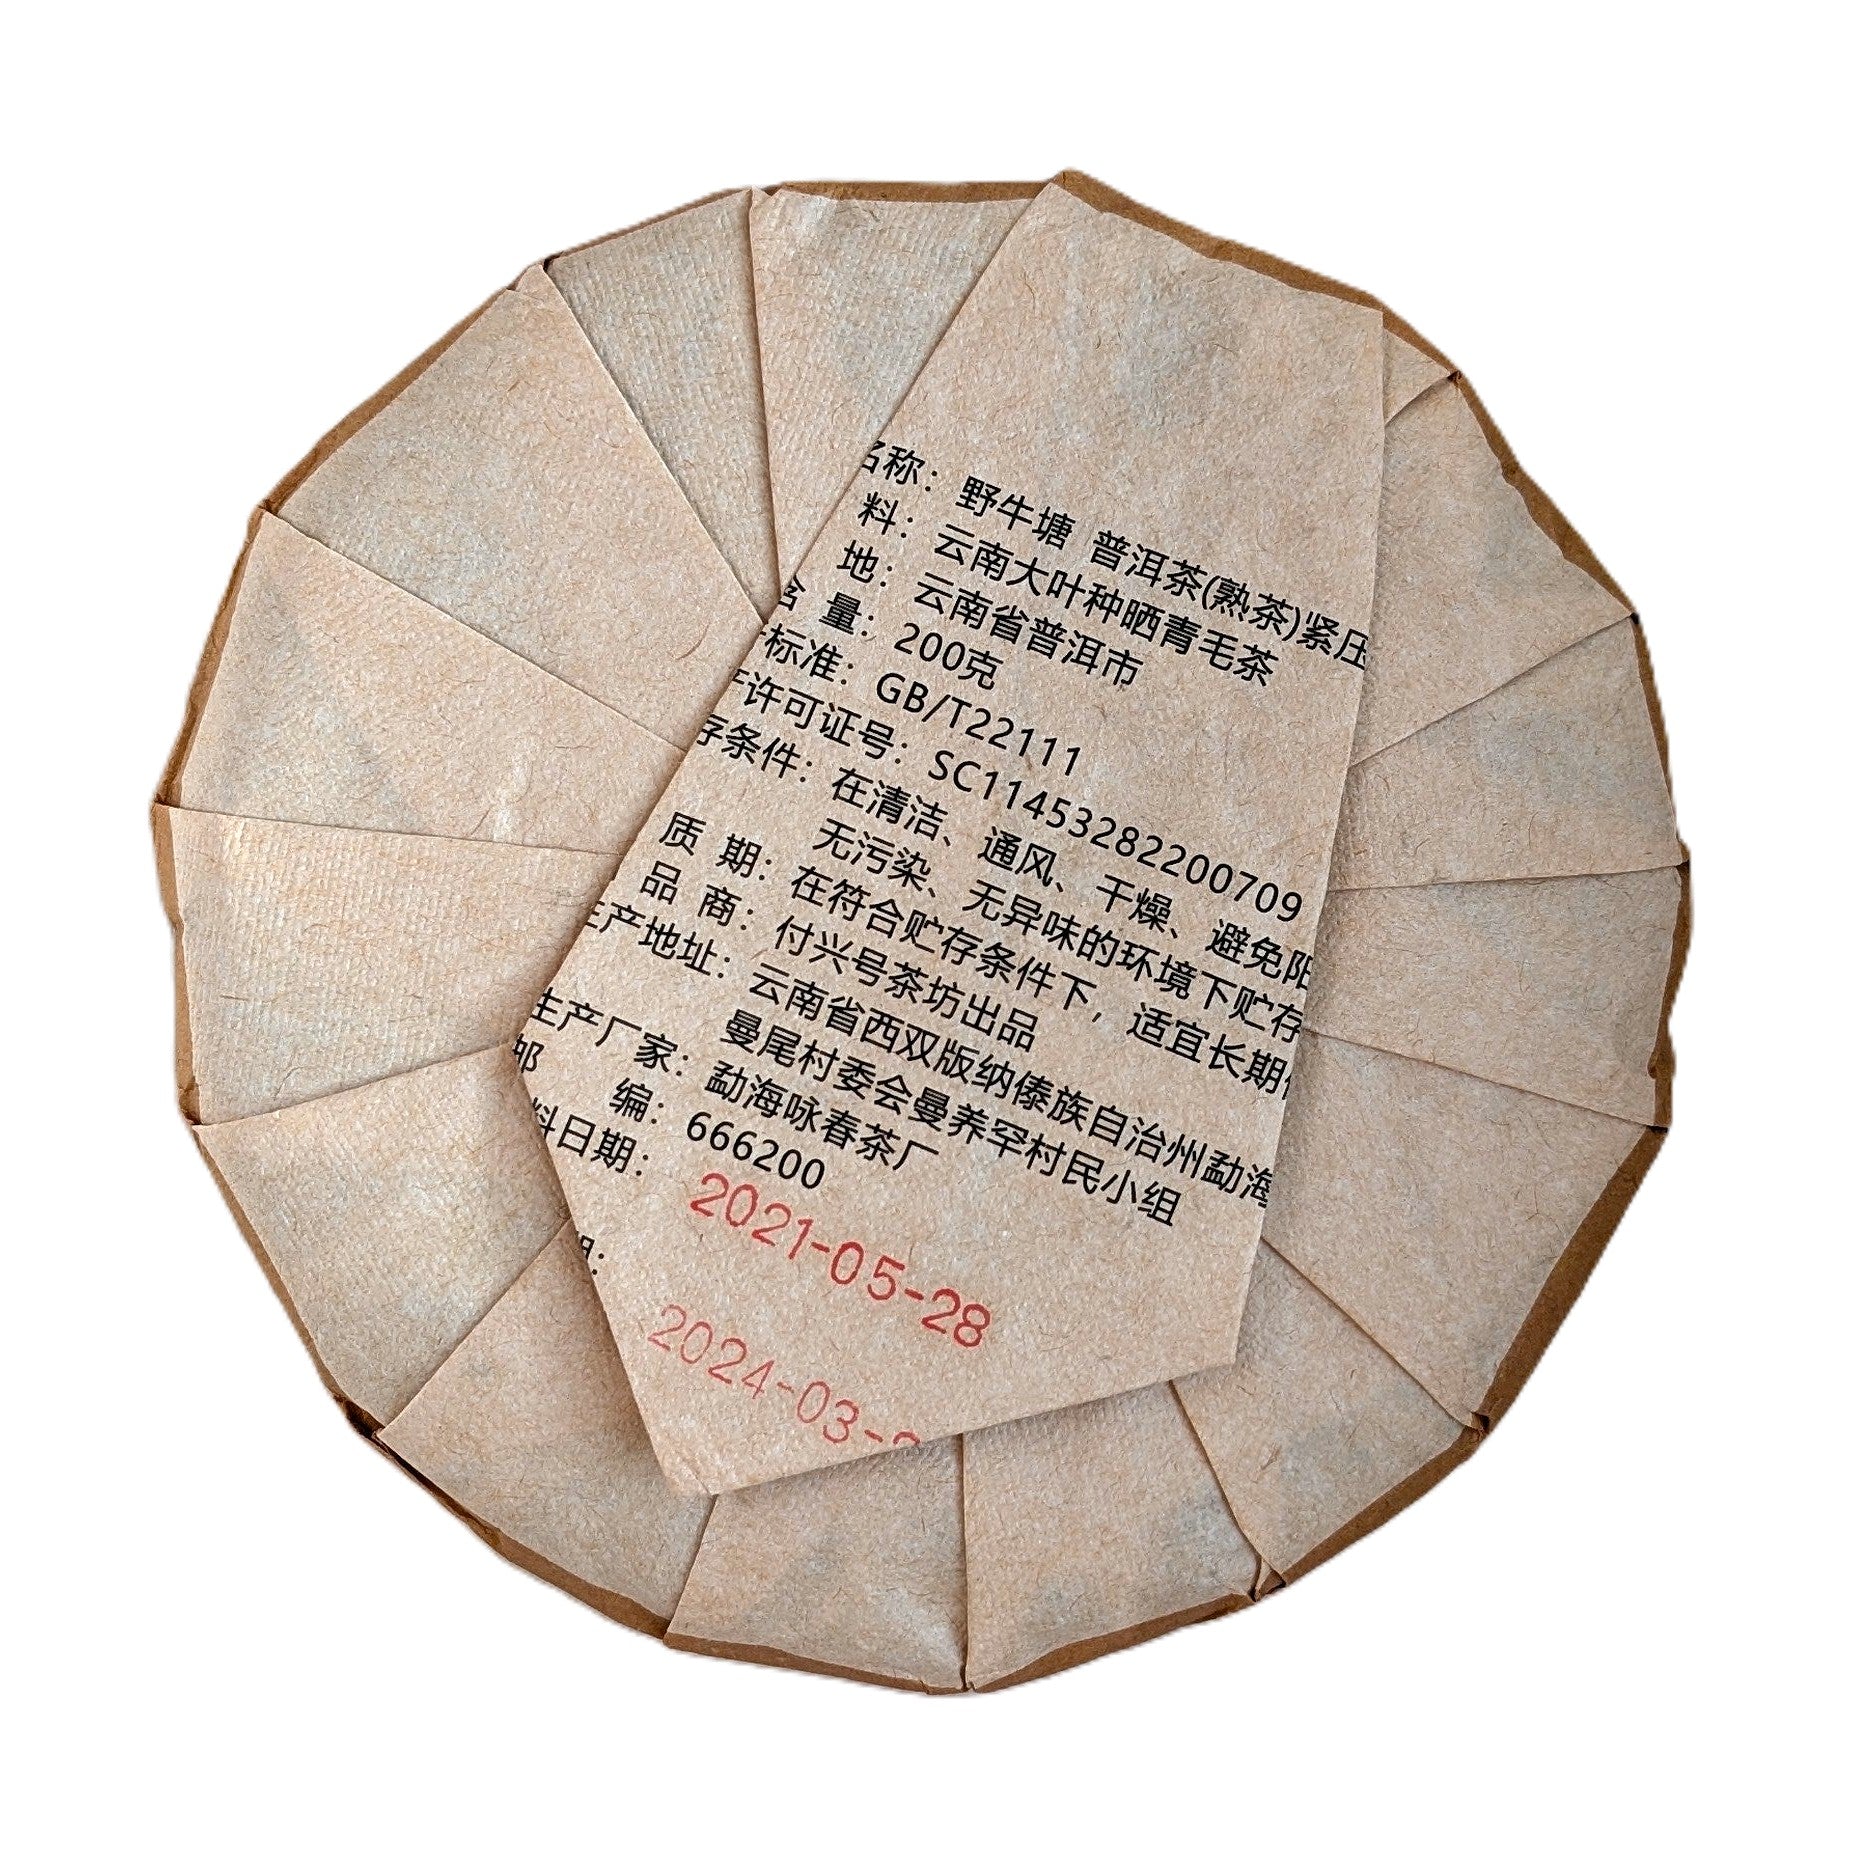 名称：野牛塘 普洱茶(熟茶)紧压
料：云南大叶种晒青毛茶
地：云南省普洱市
含 量：200克
标准：GB/T22111
产许可证号：SC11453282200709
存条件：在清洁、通风、干燥、避免阳
无污染、无异味的环境下贮存
质 期：在符合贮存条件下，适宜长期
品 商：付兴号茶坊出品
生产地址：云南省西双版纳傣族自治州勐海
曼尾村委会曼养罕村民小组
生产厂家：勐海咏春茶厂
邮 编：666200
料日期：2021-05-28
期：2024-03-2